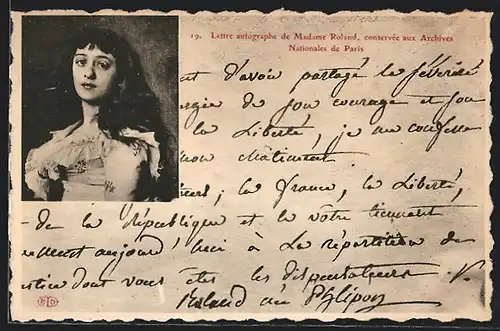 19. Lettre autographe de Madame Roland, conservée aux Archives
Nationales de Paris
t d'avoir partagé la sévérité
rgie de son courage et son
la Liberté, je me confesse
mon châtiment.
; la france, la Liberté,
de la république et la vôtre tiennent
ement aujourd'hui à la répartition de
stice dont vous êtes les dispensateurs
Roland née Phlipon